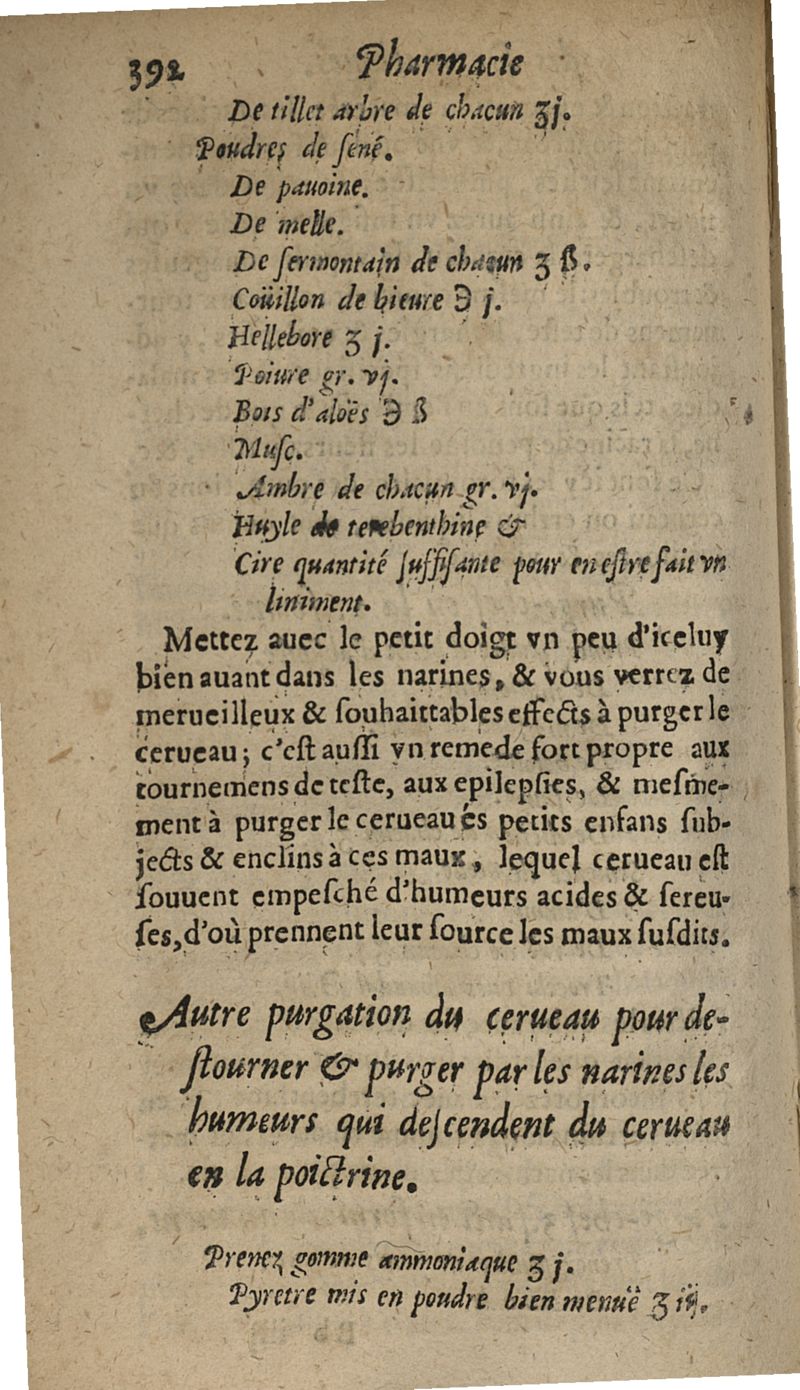 392 Pharmacie
De tillet arbre de chacun ʒj.
Poudres de ſené.
De pauoine.
De melle.
De ſermontain de chacun ʒ ß.
Coüillon de bieure ℈ j.
Hellebore ʒ j.
Poiure gr. vj.
Bois d'aloës ℈ ß
Muſc.
Ambre de chacun gr. vj.
Huyle de terebenthine &
Cire quantité ſuffiſante pour en eſtre fait vn
liniment.
Mettez auec le petit doigt vn peu d'iceluy
bien auant dans les narines, & vous verrez de
merueilleux & ſouhaittables effects à purger le
cerueau; c'eſt auſſi vn remede fort propre aux
tournemens de teſte, aux epilepſies, & meſme-
ment à purger le cerueau és petits enfans ſub-
jects & enclins à ces maux, lequel cerueau eſt
ſouuent empeſché d'humeurs acides & ſereu-
ſes, d'où prennent leur ſource les maux ſuſdits.
Autre purgation du cerueau pour de-
ſtourner & purger par les narines les
humeurs qui deſcendent du cerueau
en la poictrine.
Prenez gomme ammoniaque ʒ j.
Pyretre mis en poudre bien menuë ʒ iij.